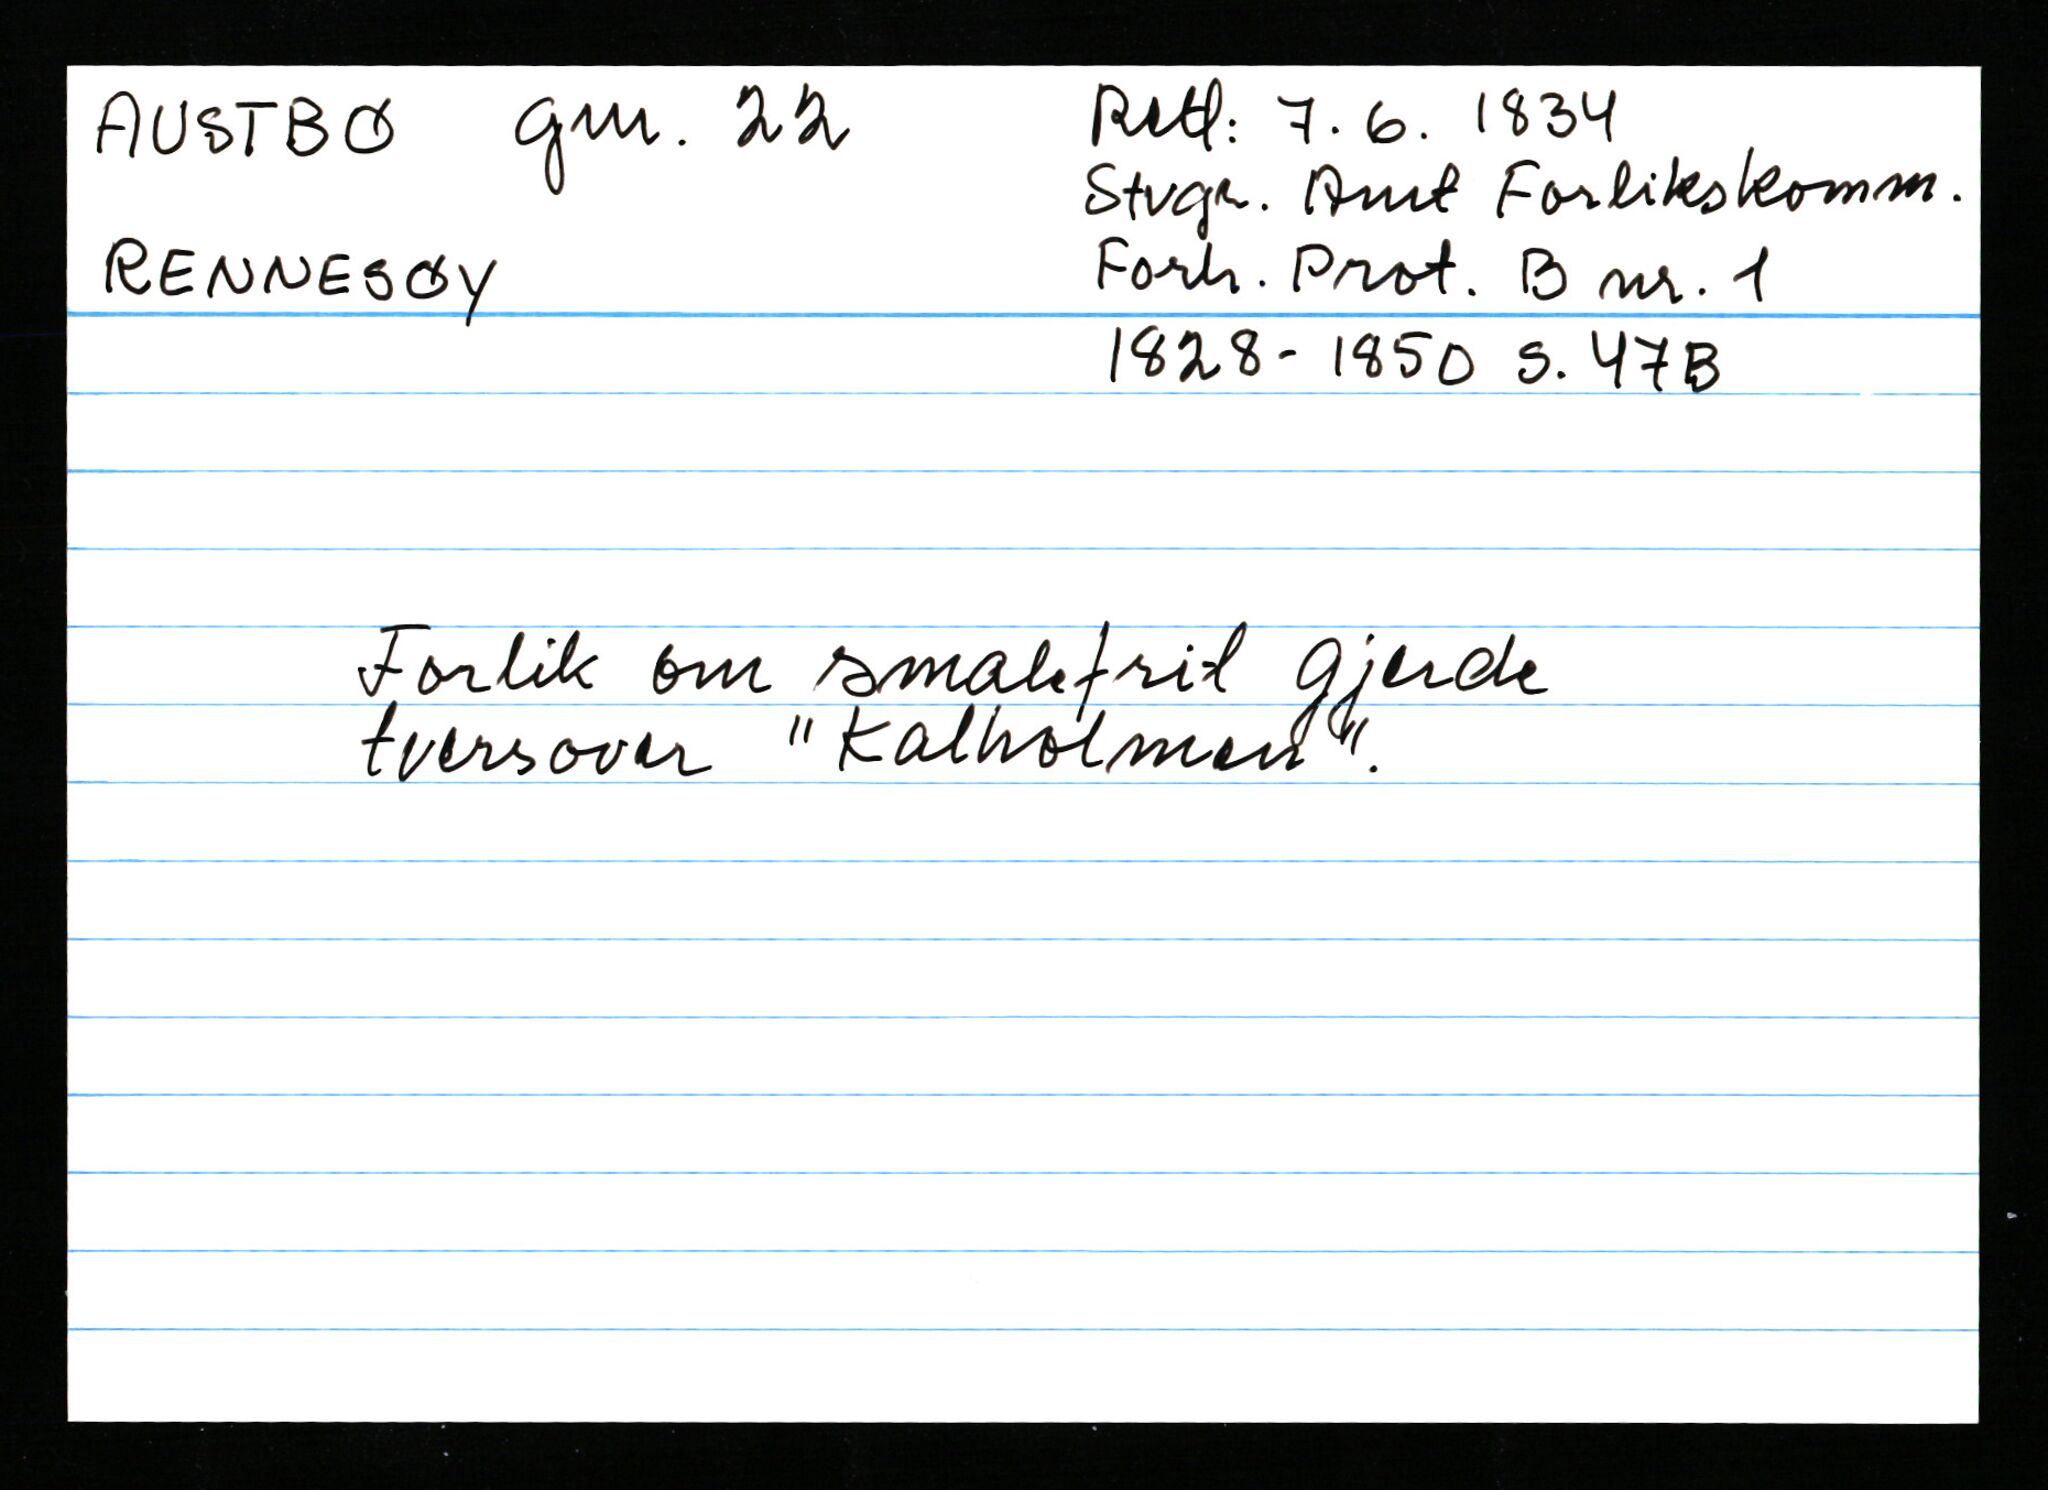 AUSTBØ gnr. 22
RENNESØY
Retl: 7. 6. 1834
Stvgr. Amt Forlikskomm.
Forh. Prot. B nr. 1
1828-1850 s. 47B
Forlik om smalefrit gjerde
tversover "Kalholmen".